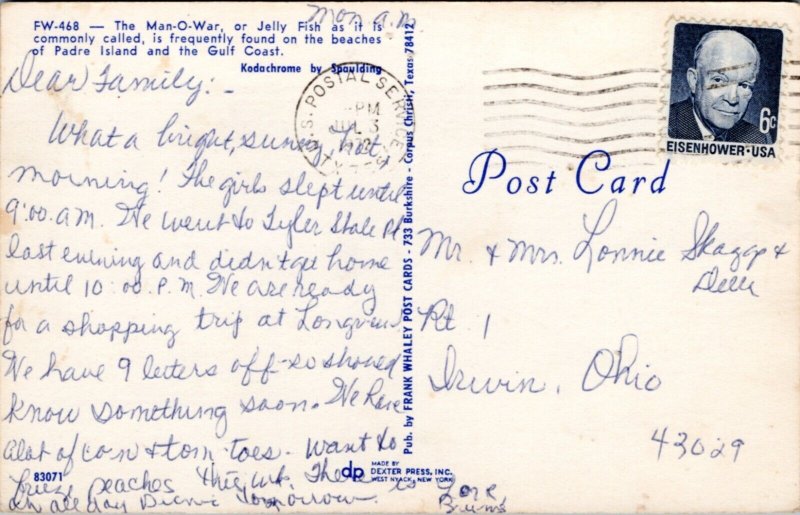 Mon a.m.
FW-468 — The Man-O-War, or Jelly Fish as it is
commonly called, is frequently found on the beaches
of Padre Island and the Gulf Coast.
Kodachrome by Spaulding
Dear Family:-
What a bright, sunny, hot
morning! The girls slept until
9:00 A.M. We went to Tyler State Pk
last evening and didn't get home
until 10:00 P.M. We are ready
for a shopping trip at Longview
We have 9 leters off-so should
know something soon. We have
alot of corn & tom-toes. Want to
freeze peaches this wk. There is
an all day Picnic tomorrow.
83071
Pub. by FRANK WHALEY POST CARDS - 733 Burkshire - Corpus Christi, Texas 78412
dp MADE BY
DEXTER PRESS, INC.
WEST NYACK, NEW YORK
U.S. POSTAL SERVICE
PM
JUL 3
EISENHOWER·USA
6c
Post Card
Mr. & Mrs. Lonnie Skaggs &
Rt 1
Irwin, Ohio
43029